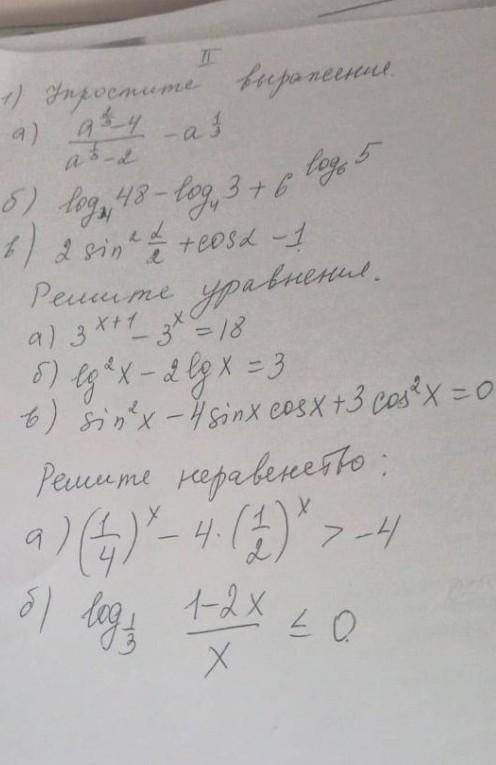 II
1) Упростите выражение.
а) (a^(2/3) - 4)/(a^(1/3) - 2) - a^(1/3)
б) log₄ 48 - log₄ 3 + 6^(log₆ 5)
в) 2 sin² α/2 + cos α - 1
Решите уравнение.
а) 3^(x+1) - 3^x = 18
б) lg²x - 2 lg x = 3
в) sin²x - 4 sin x cos x + 3 cos²x = 0
Решите неравенство:
а) (1/4)^x - 4·(1/2)^x > -4
б) log_(1/3) (1-2x)/x ≤ 0